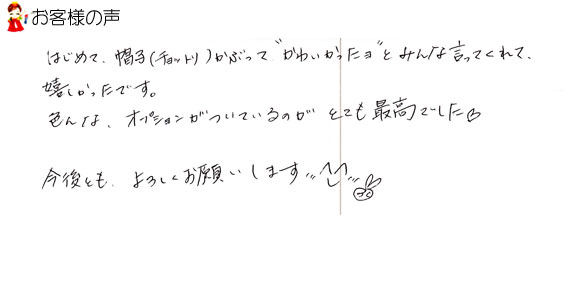 お客様の声
はじめて、帽子(チョットリ)かぶって"かわいかったヨ"とみんな言ってくれて、
嬉しかったです。
色んな、オプションがついているのが とても最高でした
今後とも、よろしくお願いします